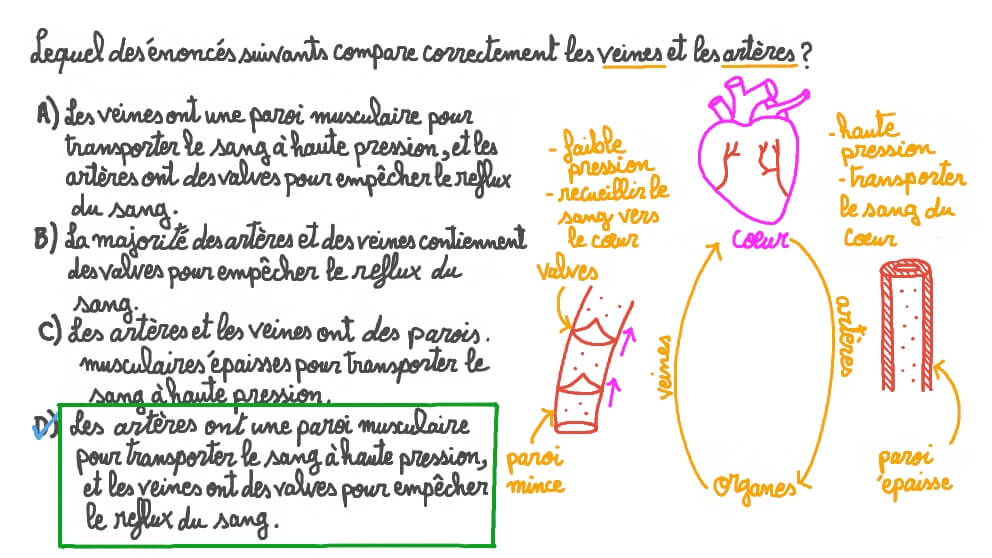 Lequel des énoncés suivants compare correctement les veines et les artères ?
A) Les veines ont une paroi musculaire pour
transporter le sang à haute pression, et les
artères ont des valves pour empêcher le reflux
du sang.
B) La majorité des artères et des veines contiennent
des valves pour empêcher le reflux du
sang.
C) Les artères et les veines ont des parois
musculaires épaisses pour transporter le
sang à haute pression.
D) Les artères ont une paroi musculaire
pour transporter le sang à haute pression,
et les veines ont des valves pour empêcher
le reflux du sang.
- faible
pression
- recueillir le
sang vers
le cœur
valves
paroi
mince
cœur
veines
artères
organes
- haute
pression
- transporter
le sang du
cœur
paroi
épaisse